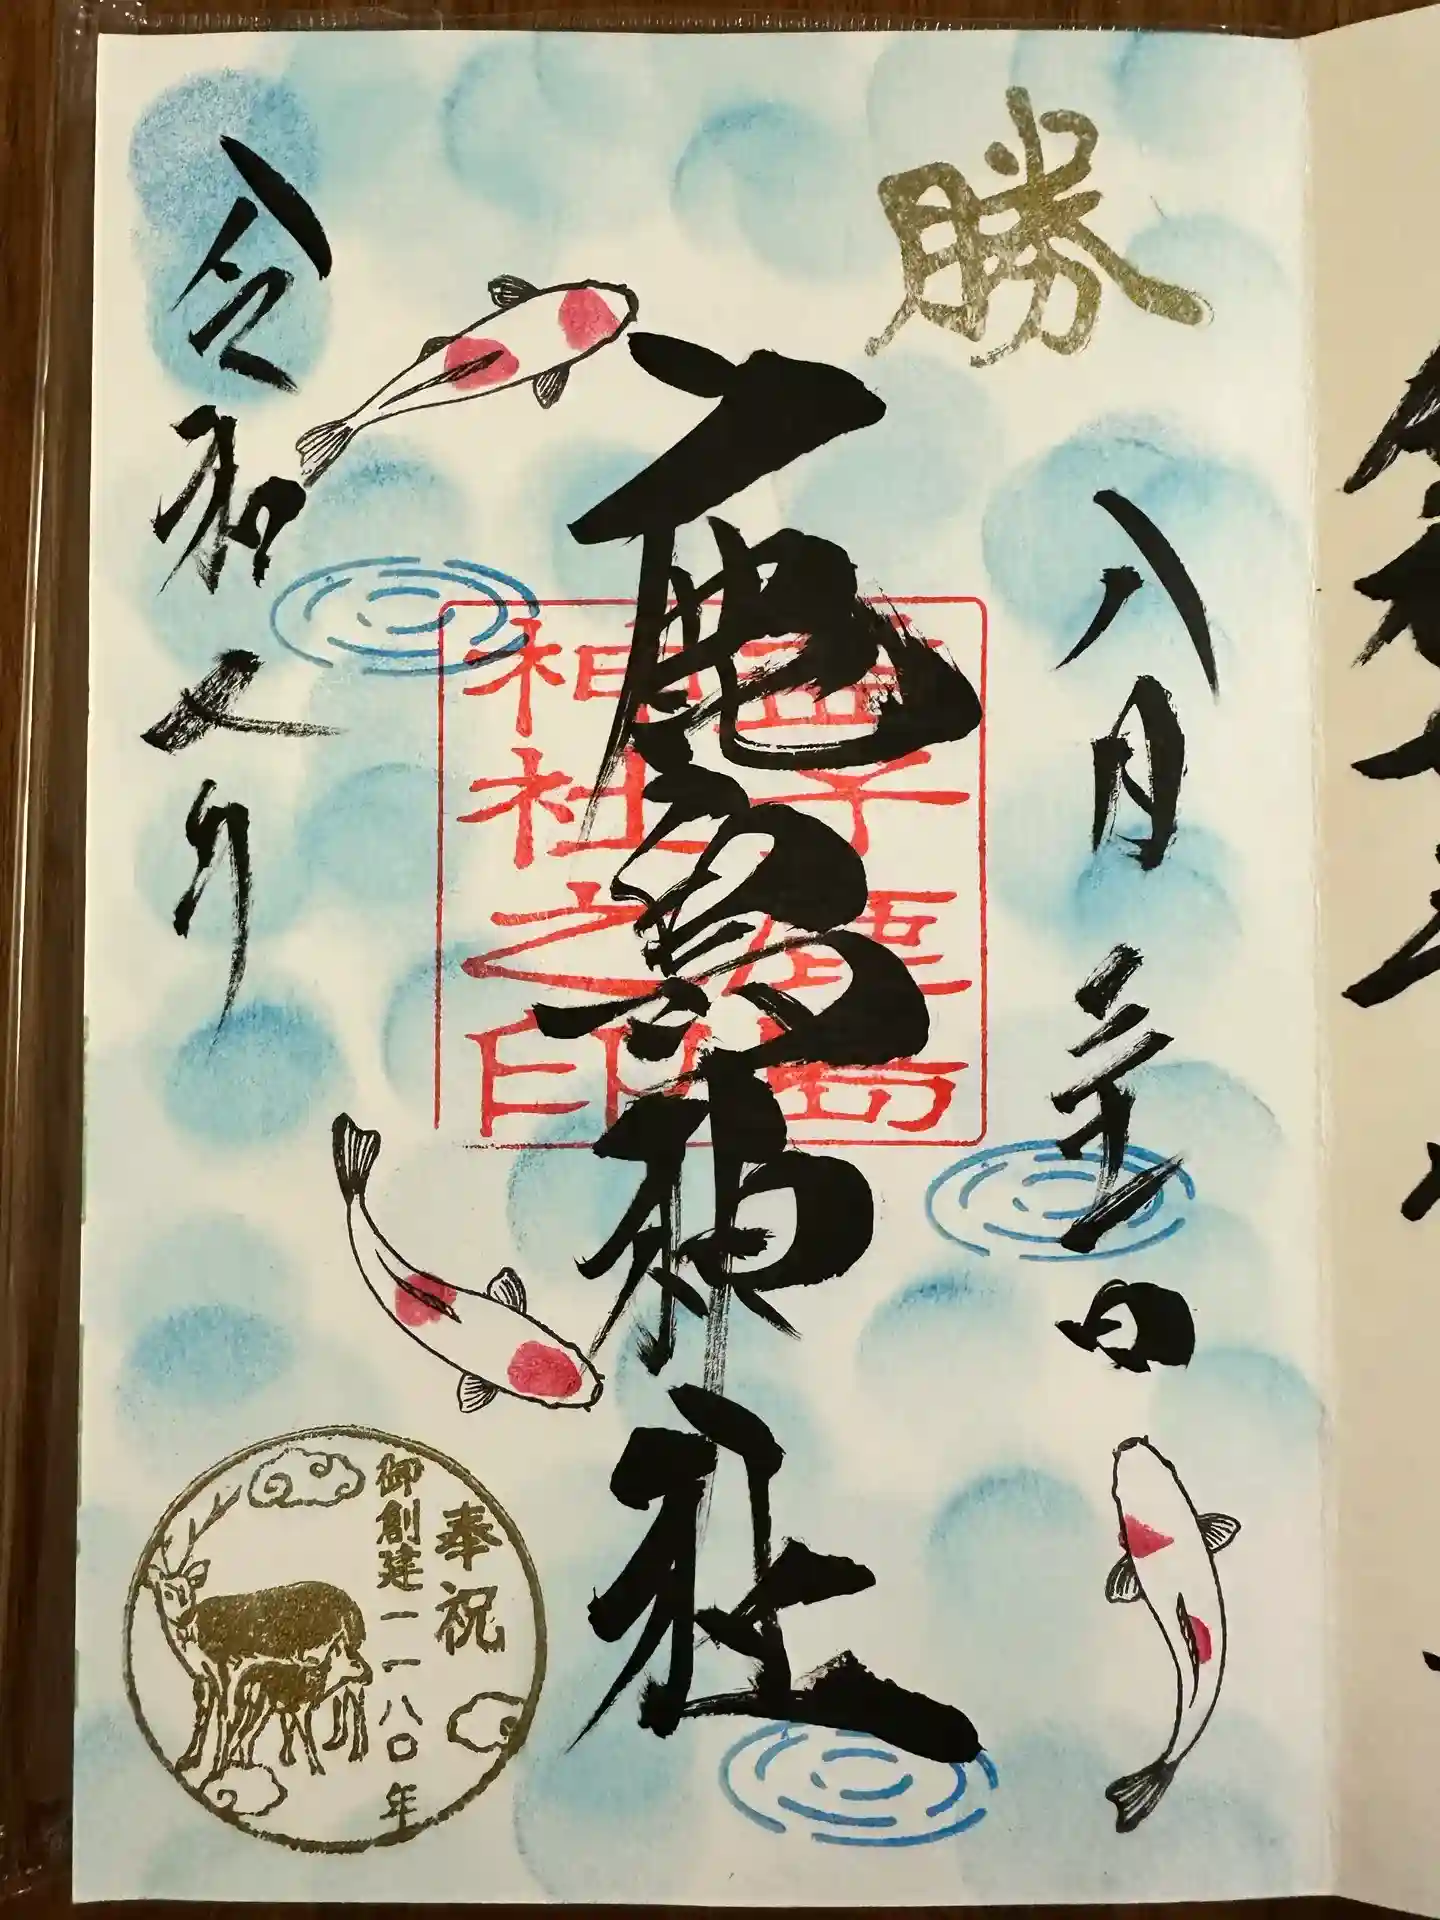 勝
八月
日
鹿島神社
子鹿島
神社之印
令和七年
奉祝
御創建一一八〇年